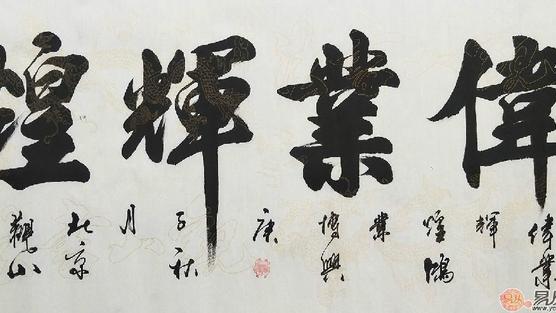 偉業輝煌
偉業
輝
煌鴻
業
博興
庚
子秋
月
北京
觀山
易